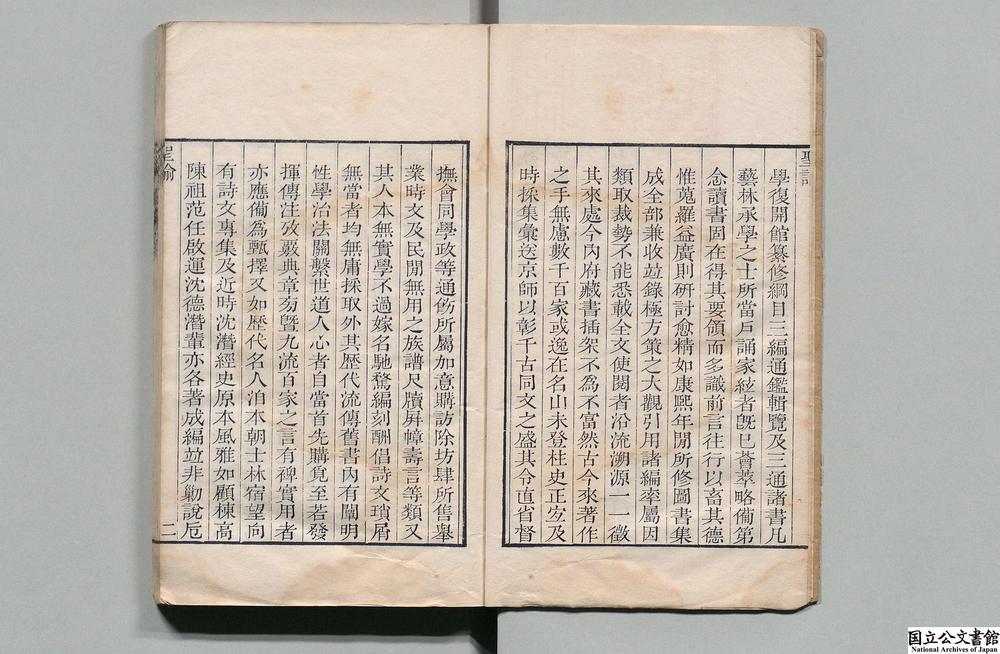 聖諭
學復開館纂修綱目三編通鑑輯覽及三通諸書凡
藝林承學之士所當戶誦家絃者旣已薈萃略備第
念讀書固在得其要領而多識前言往行以畜其德
惟蒐羅益廣則硏討愈精如康熙年閒所修圖書集
成全部兼收竝錄極方策之大觀引用諸編率屬因
類取裁勢不能悉載全文使閱者沿流溯源一一徵
其來處今內府藏書插架不爲不富然古今來著作
之手無慮數千百家或逸在名山未登柱史正宜及
時採集彙送京師以彰千古同文之盛其令直省督
撫會同學政等通飭所屬加意購訪除坊肆所售舉
業時文及民閒無用之族譜尺牘屛幛壽言等類又
其人本無實學不過嫁名馳騖編刻酬倡詩文瑣屑
無當者均無庸採取外其歷代流傳舊書內有闡明
性學治法關繫世道人心者自當首先購覓至若發
揮傳注攷覈典章旁曁九流百家之言有裨實用者
亦應備爲甄擇又如歷代名人洎本朝士林宿望向
有詩文專集及近時沈潛經史原本風雅如顧棟高
陳祖范任啟運沈德潛輩亦各著成編竝非勦說卮
聖諭
二
国立公文書館
National Archives of Japan